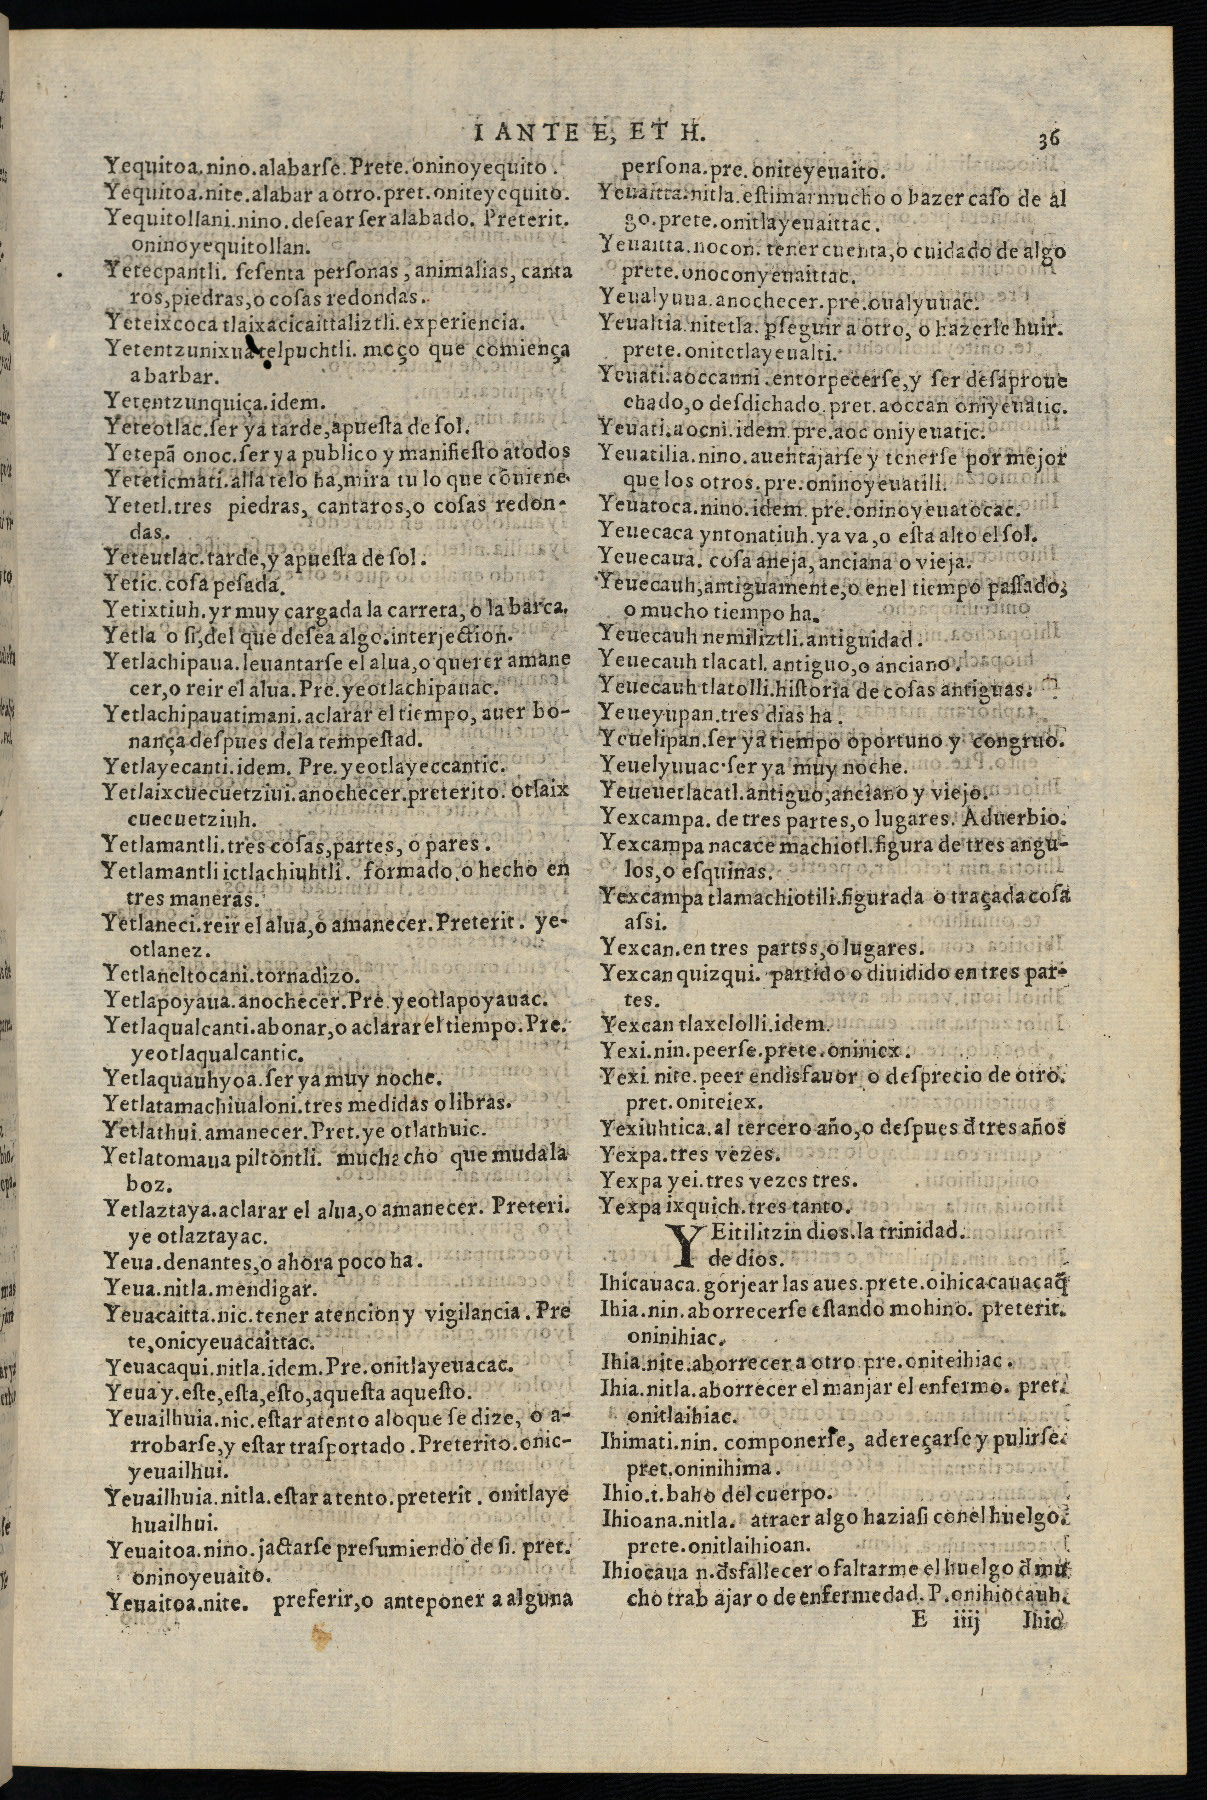 I ANTE E, ET H.
36
Yequitoa.nino.alabarſe.Prete.oninoyequito.
Yequitoa.nite.alabar a otro.pret.oniteyequito.
Yequitollani.nino.deſear ſer alabado. Preterit.
oninoyequitollan.
Yetecpantli. ſeſenta perſonas, animalias, canta
ros,piedras,o coſas redondas.
Yeteixcoca tlaixacicaittaliztli.experiencia.
Yetentzunixua telpuchtli. moço que comiença
a barbar.
Yetentzunquiça.idem.
Yeteotlac.ſer ya tarde,apueſta de ſol.
Yetepã onoc.ſer ya publico y manifieſto atodos
Yeteticmati.alla telo ha,mira tu lo que cõuiene.
Yetetl.tres piedras, cantaros,o coſas redon-
das.
Yeteutlac.tarde,y apueſta de ſol.
Yetic.coſa peſada.
Yetixtiuh.yr muy cargada la carreta, o la barca.
Yetla o ſi,del que deſea algo.interjection.
Yetlachipaua.leuantarſe el alua,o querer amane
cer,o reir el alua.Pre.yeotlachipauac.
Yetlachipauatimani.aclarar el tiempo, auer bo-
nança deſpues dela tempeſtad.
Yetlayecanti.idem. Pre.yeotlayeccantic.
Yetlaixcuecuetziui.anochecer.preterito. otlaix
cuecuetziuh.
Yetlamantli.tres coſas,partes, o pares.
Yetlamantli ictlachiuhtli. formado,o hecho en
tres maneras.
Yetlaneci.reir el alua,o amanecer.Preterit. ye-
otlanez.
Yetlaneltocani.tornadizo.
Yetlapoyaua.anochecer.Pre.yeotlapoyauac.
Yetlaqualcanti.abonar,o aclarar el tiempo.Pre.
yeotlaqualcantic.
Yetlaquauhyoa.ſer ya muy noche.
Yetlatamachiualoni.tres medidas o libras.
Yetlathui.amanecer.Pret.ye otlathuic.
Yetlatomaua piltontli. muchacho que muda la
boz.
Yetlaztaya.aclarar el alua,o amanecer. Preteri.
ye otlaztayac.
Yeua.denantes,o ahora poco ha.
Yeua.nitla.mendigar.
Yeuacaitta.nic.tener atencion y vigilancia. Pre
te.onicyeuacaittac.
Yeuacaqui.nitla.idem.Pre.onitlayeuacac.
Yeua y.eſte,eſta,eſto,aqueſta aqueſto.
Yeuailhuia.nic.eſtar atento aloque ſe dize, o a-
rrobarſe,y eſtar traſportado.Preterito.onic-
yeuailhui.
Yeuailhuia.nitla.eſtar atento.preterit. onitlaye
huailhui.
Yeuaitoa.nino.jactarſe preſumiendo de ſi. pret.
oninoyeuaito.
Yeuaitoa.nite. preferir,o anteponer a alguna
perſona.pre.oniteyeuaito.
Yeuaitta.nitla.eſtimar mucho o hazer caſo de al
go.prete.onitlayeuaittac.
Yeuaitta.nocon. tener cuenta,o cuidado de algo
prete.onoconyeuaittac.
Yeualyuua.anochecer.pre.oualyuuac.
Yeualtia.nitetla. pſeguir a otro, o hazerle huir.
prete.onitetlayeualti.
Yeuati.aoccanni.entorpecerſe,y ſer deſaproue
chado,o deſdichado.pret.aoccan oniyeuatic.
Yeuati.aocni.idem.pre.aoc oniyeuatic.
Yeuatilia.nino.auentajarſe y tenerſe por mejor
que los otros.pre.oninoyeuatili.
Yeuatoca.nino.idem.pre.oninoyeuatocac.
Yeuecaca yntonatiuh.ya va,o eſta alto el ſol.
Yeuecaua. coſa aneja, anciana o vieja.
Yeuecauh,antiguamente,o enel tiempo paſſado,
o mucho tiempo ha.
Yeuecauh nemiliztli.antiguidad.
Yeuecauh tlacatl.antiguo,o anciano.
Yeuecauh tlatolli.hiſtoria de coſas antiguas.
Yeueyupan.tres dias ha.
Yeuelipan.ſer ya tiempo oportuno y congruo.
Yeuelyuuac.ſer ya muy noche.
Yeueuetlacatl.antiguo,anciano y viejo.
Yexcampa. de tres partes,o lugares. Aduerbio.
Yexcampa nacace machiotl.figura de tres angu-
los,o eſquinas.
Yexcampa tlamachiotili.figurada o traçada coſa
aſsi.
Yexcan.en tres partss,o lugares.
Yexcan quizqui. partido o diuidido en tres par-
tes.
Yexcan tlaxelolli.idem.
Yexi.nin.peerſe.prete.oniniex.
Yexi.nite.peer endisfauor o deſprecio de otro.
pret.oniteiex.
Yexiuhtica.al tercero año,o deſpues đ tres años
Yexpa.tres vezes.
Yexpa yei.tres vezes tres.
Yexpa ixquich.tres tanto.
YEitilitzin dios.la trinidad.
de dios.
Ihicauaca.gorjear las aues.prete.oihicacauacaq̃
Ihia.nin.aborrecerſe eſtando mohino. preterit.
oninihiac.
Ihia.nite.aborrecer a otro.pre.oniteihiac.
Ihia.nitla.aborrecer el manjar el enfermo. pret.
onitlaihiac.
Ihimati.nin. componerſe, adereçarſe y pulirſe.
pret.oninihima.
Ihio.i.baho del cuerpo.
Ihioana.nitla. atraer algo haziaſi conel huelgo.
prete.onitlaihioan.
Ihiocaua n.đsfallecer o faltarme el huelgo đ mu
cho trab ajar o de enfermedad.P.onihiocauh.
E iiij Ihio